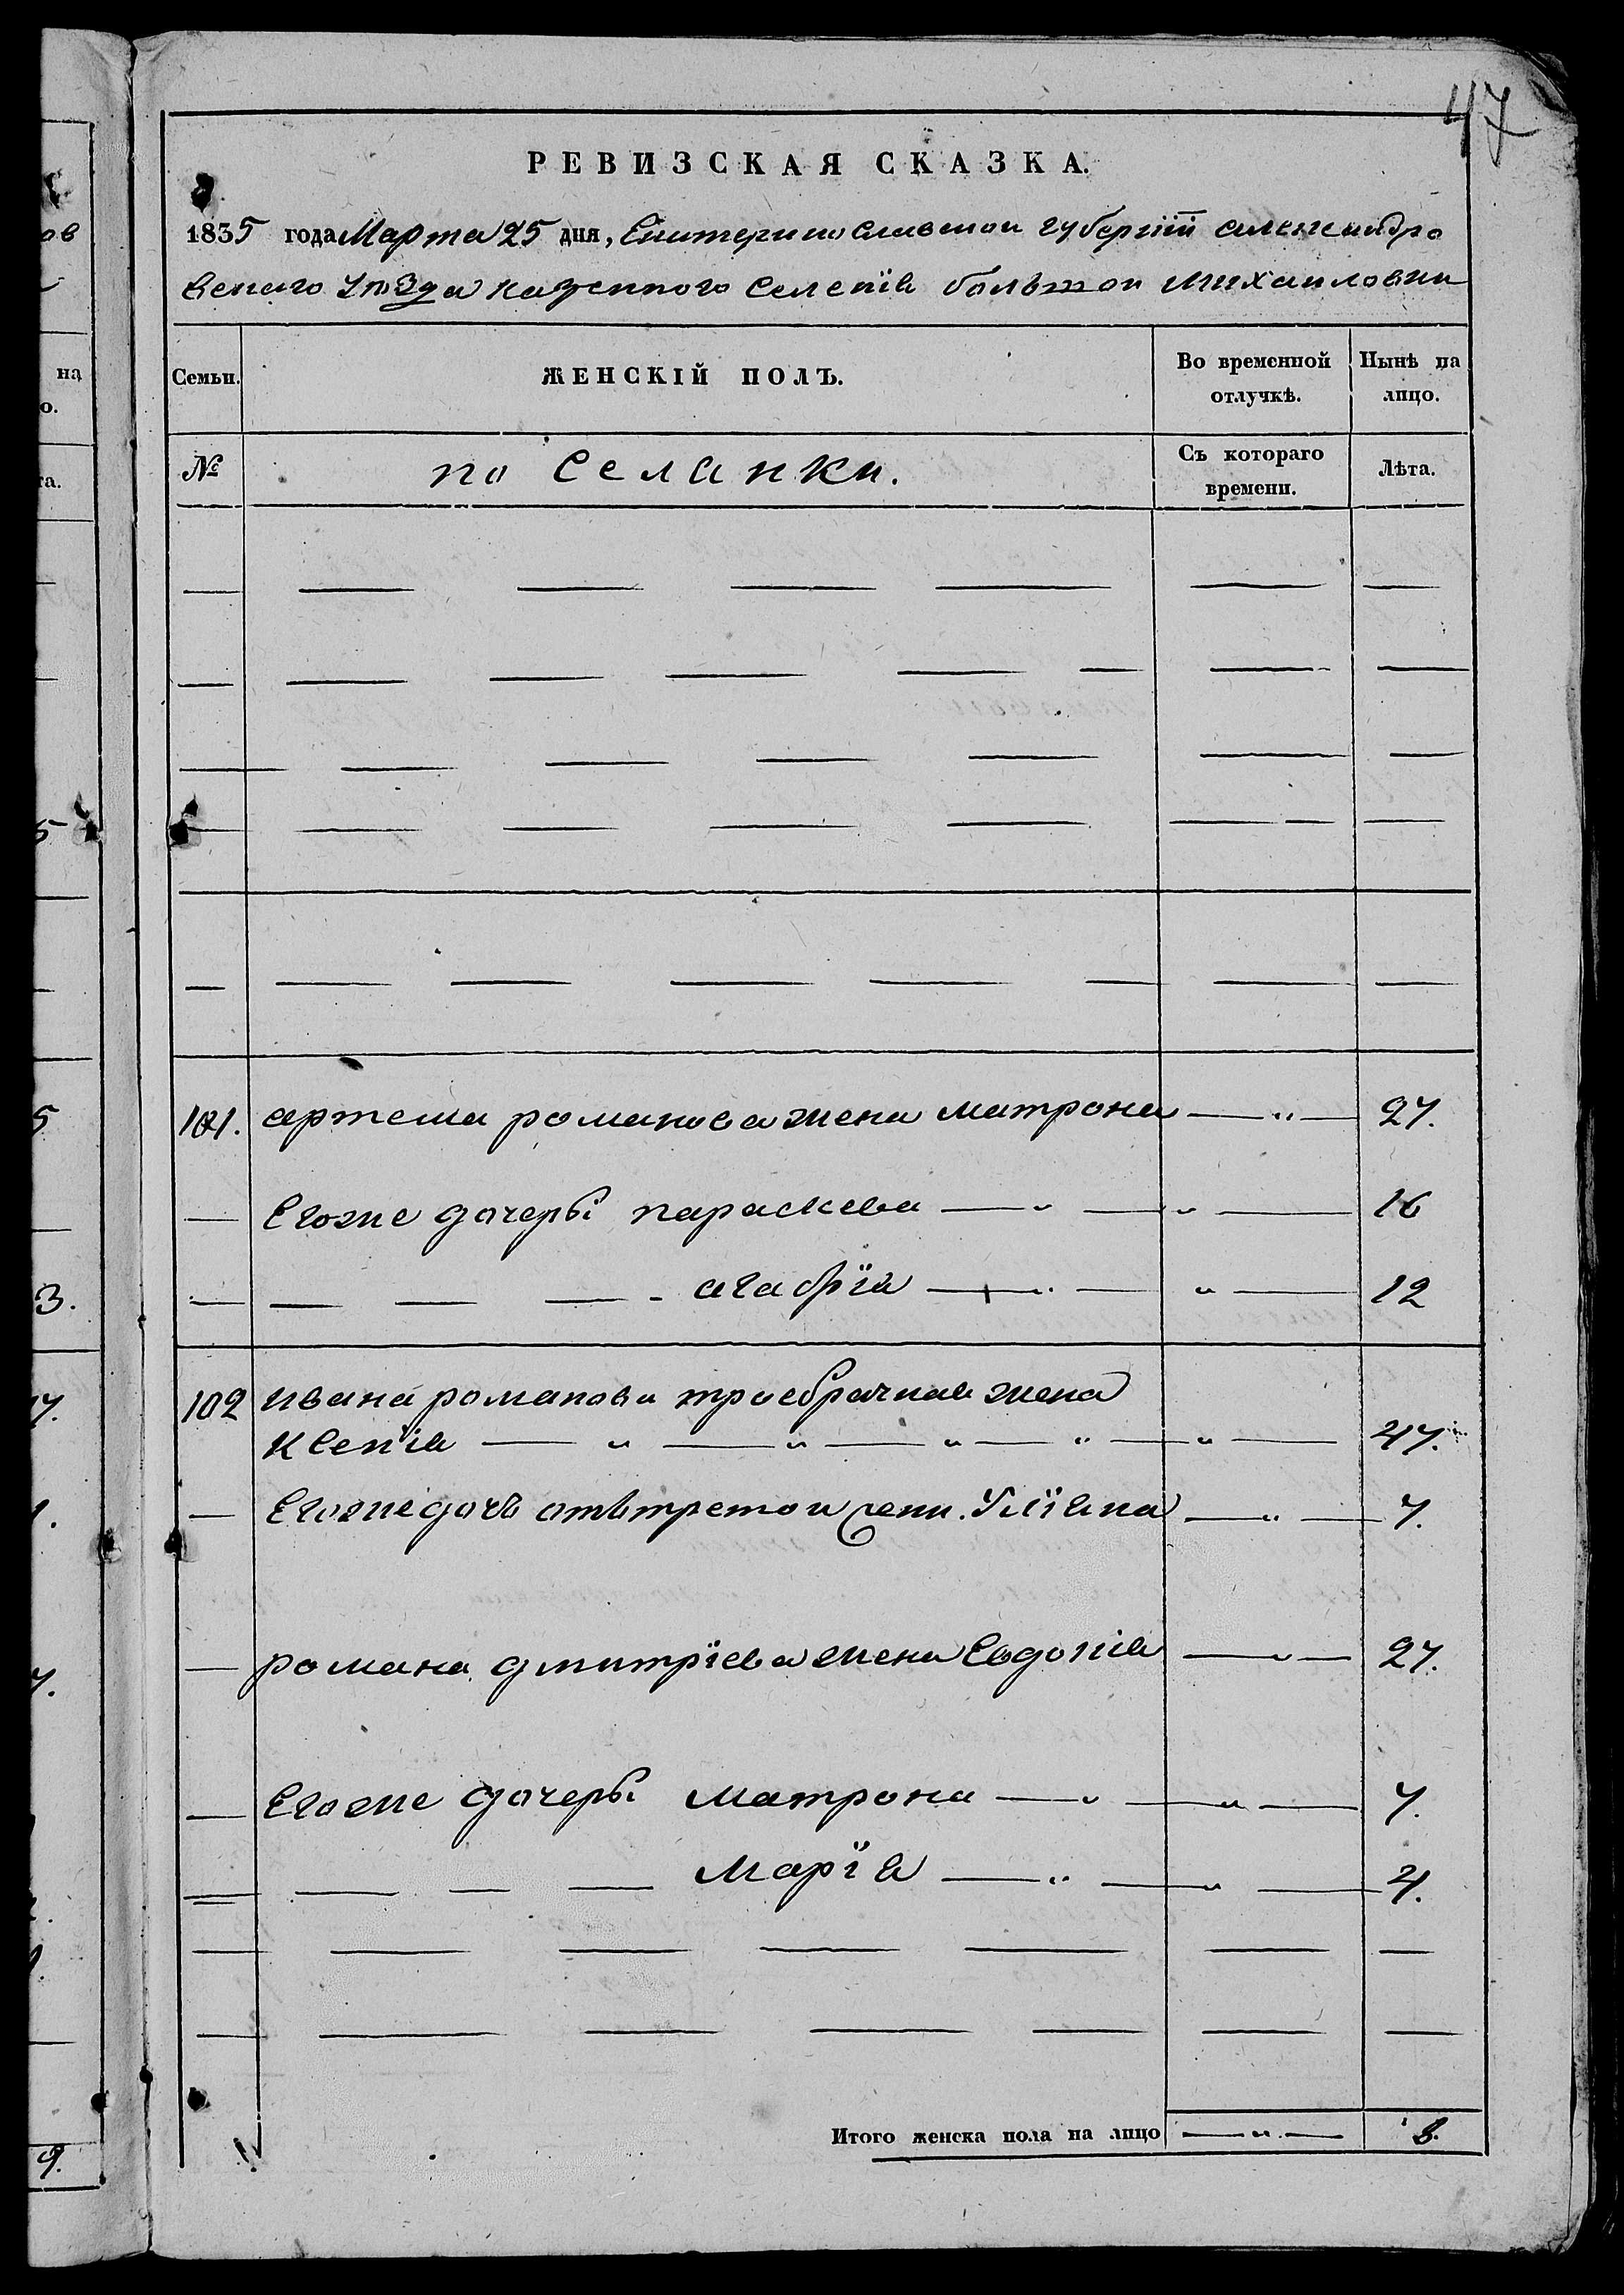 47
РЕВИЗСКАЯ СКАЗКА.
1835 года Марта 25 дня, Екатеринославской губерніи александро
вскаго уѣзда казенного Селенія большой михайловки
Семьи. ЖЕНСКІЙ ПОЛЪ. Во временной отлучкѣ. Нынѣ на лицо.
№ поселянки. Съ котораго времени. Лѣта.
101. артема романова жена матрона — " — 27.
— Егоже дочеры параскева — " — " — 16
— — — — агафїя — " — " — 12
102 ивана романова троебрачная жена
Ксенїя — " — " — " — " — " — 47.
— Егоже дочь отътретой жены Уліяна — " — 7.
— романа дмитрїева жена Евдокія — " — 27.
— Егоже дочеры матрона — " — " — 7.
— — — — Марїя — " — " — 4.
Итого женска пола на лицо — " — 8.
ов
на
о.
та.
5
5
3.
7.
1.
7.
9.